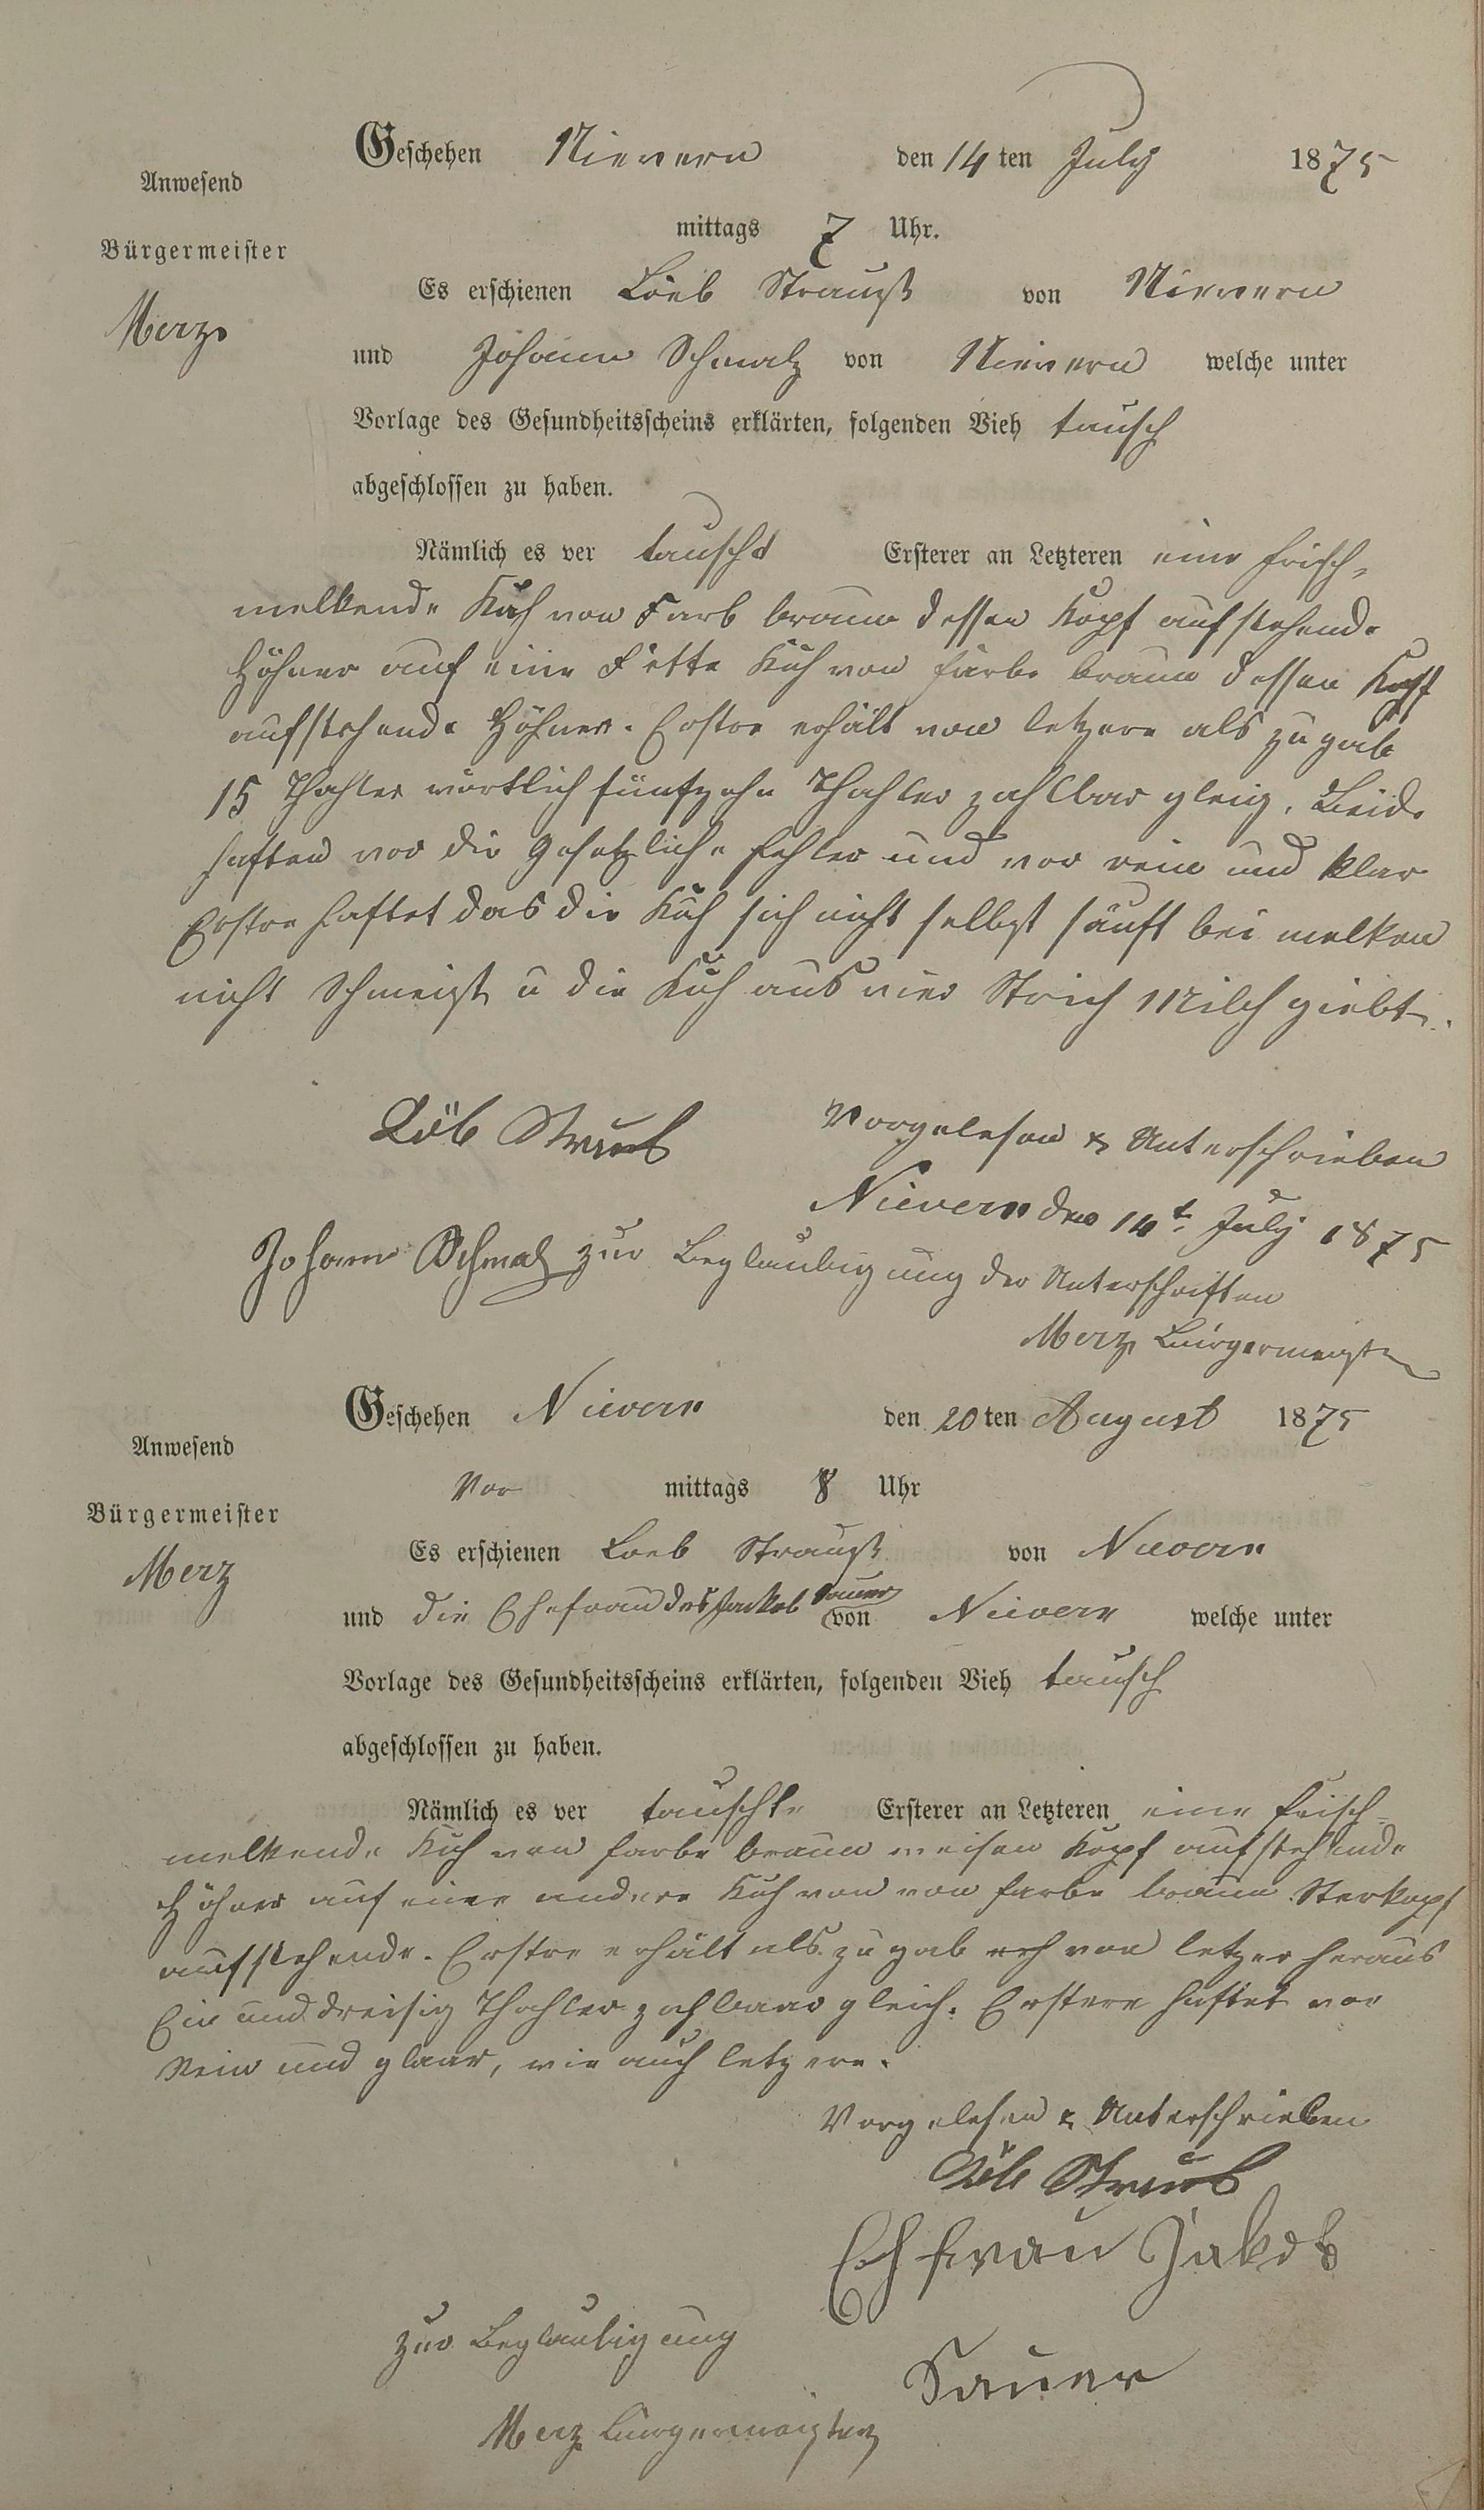 Geschehen Nievern den 14 ten July 1875
Anwesend
mittags 7 Uhr.
Bürgermeister
Es erschienen Löeb Strauß von Nievern
Merz
und Johann Schmalz von Nievern welche unter
Vorlage des Gesundheitsscheins erklärten, folgenden Vieh tausch
abgeschlossen zu haben.
Nämlich es ver tauscht Ersterer an Letzteren eine frisch-
melkende Kuh von Farb braun dessen Kopf aufstehende
Höhner auf eine Fette Kuh von farbe braun dessen Kopf
aufstehende Höhner. Erstre erhält von letzere als zugab
15 Thahler wörtlich fünfzehn Thahler zahlbar gleig. Beide
haften vor die gesetzliche fehler und vor rein und klar
Erstre haftet das die Kuh sich nicht selbst säuft bei melken
nicht Schmeigt u die Kuh aus vier Strich Milch giebt.
Löb Straus
Vorgelesen & Unterschrieben
Nievern den 14t July 1875
Johann Schmalz zur Beglaubigung der Unterschriften
Merz Bürgermeister
Geschehen Nievern den 20 ten August 1875
Anwesend
Vor mittags 8 Uhr
Bürgermeister
Es erschienen Loeb Strauß von Nievern
Merz
und die Ehefrau des Jackob Sauer von Nievern welche unter
Vorlage des Gesundheitsscheins erklärten, folgenden Vieh tausch
abgeschlossen zu haben.
Nämlich es ver tauschte Ersterer an Letzteren eine frisch-
melkende Kuh von farbe braun weisen Kopf aufstehende
Höhner auf eine andere Kuh von von farbe braun Sterkopf
aufstehende. Erstre erhält als zugab von letzer heraus
Ein und dreisig Thahler zahlbaar gleich. Erstere haftet vor
Rein und glaar, wie auch letzere.
Vorgelesen & Unterschrieben
Löb Straus
Ehfrau Jakob
Sauer
zur Beglaubigung
Merz Bürgermeister